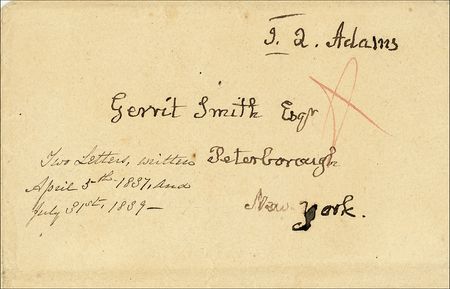 J. Q. Adams
Gerrit Smith Esqr
Peterborough
New-York.
Two Letters, written
April 5th 1837, and
July 31st, 1839—